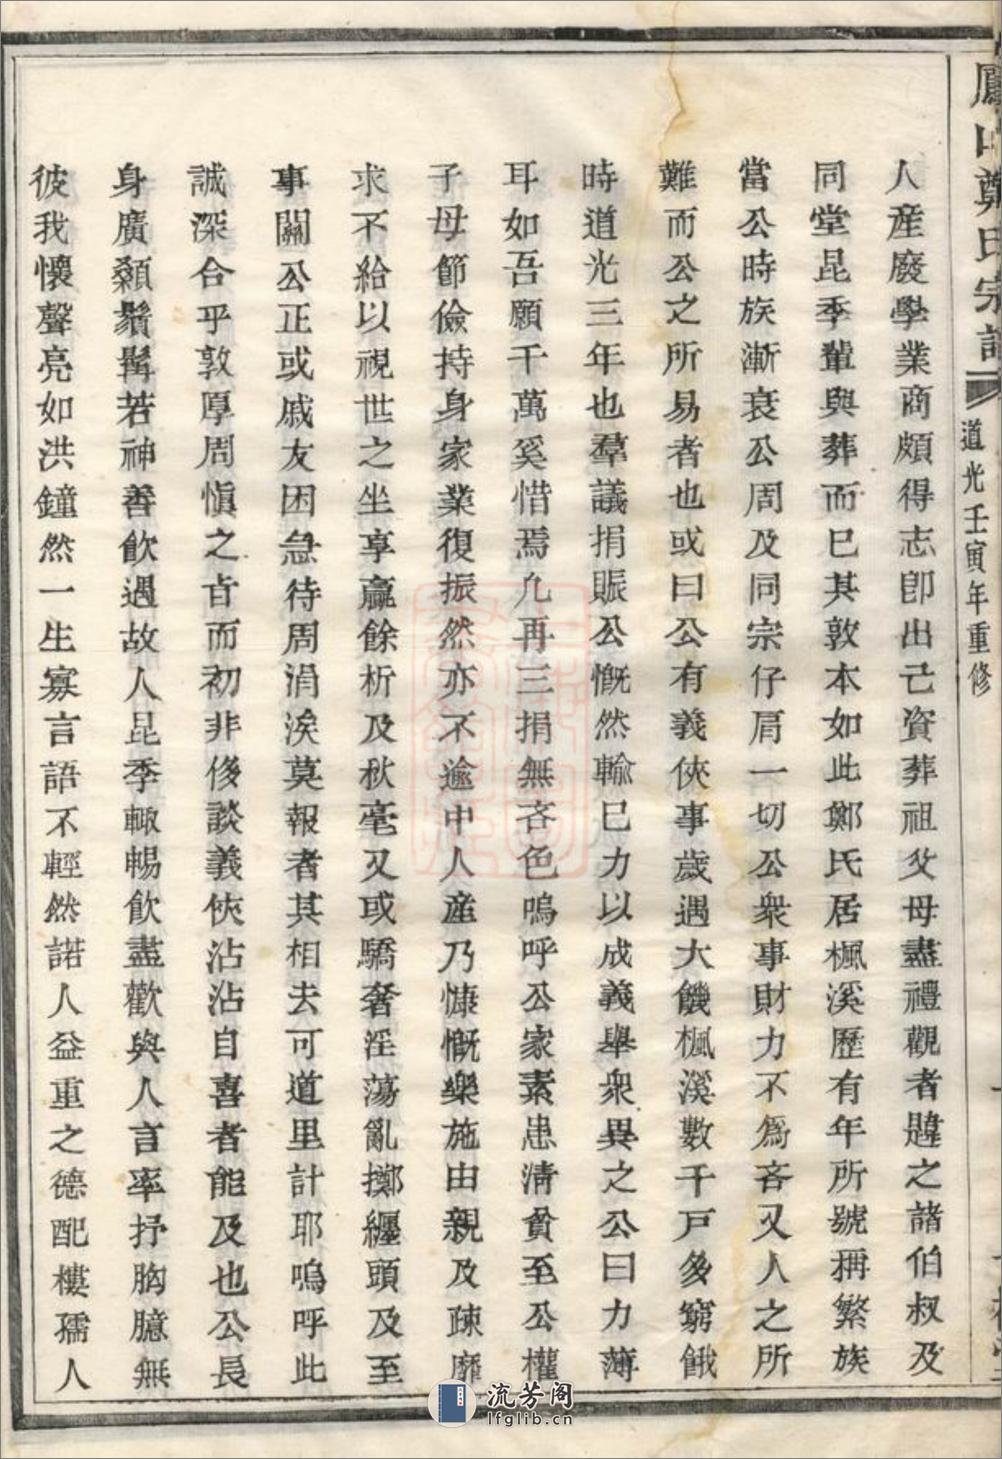 鄭氏宗譜
道光壬寅年重修
人産廢學業商頗得志卽出己資葬祖父母盡禮觀者韙之諸伯叔及
同堂昆季輩與葬而已其敦本如此鄭氏居楓溪歷有年所號稱繁族
當公時族漸衰公周及同宗仔肩一切公衆事財力不爲吝又人之所
難而公之所易者也或曰公有義俠事歲遇大饑楓溪數千戸多窮餓
時道光三年也羣議捐賑公慨然輸已力以成義舉衆異之公曰力薄
耳如吾願千萬奚惜焉九再三捐無吝色嗚呼公家素患清貧至公權
子母節儉持身家業復振然亦不逾中人産乃慷慨樂施由親及疎靡
求不給以視世之坐享贏餘析及秋毫又或驕奢淫蕩亂擲纏頭及至
事關公正或戚友困急待周涓涘莫報者其相去可道里計耶嗚呼此
誠深合乎敦厚周愼之旨而初非侈談義俠沾沾自喜者能及也公長
身廣顙鬚髯若神善飮遇故人昆季輙暢飮盡歡與人言率抒胸臆無
彼我懷聲亮如洪鐘然一生寡言語不輕然諾人益重之德配樓孺人
流芳阁
lfglib.cn